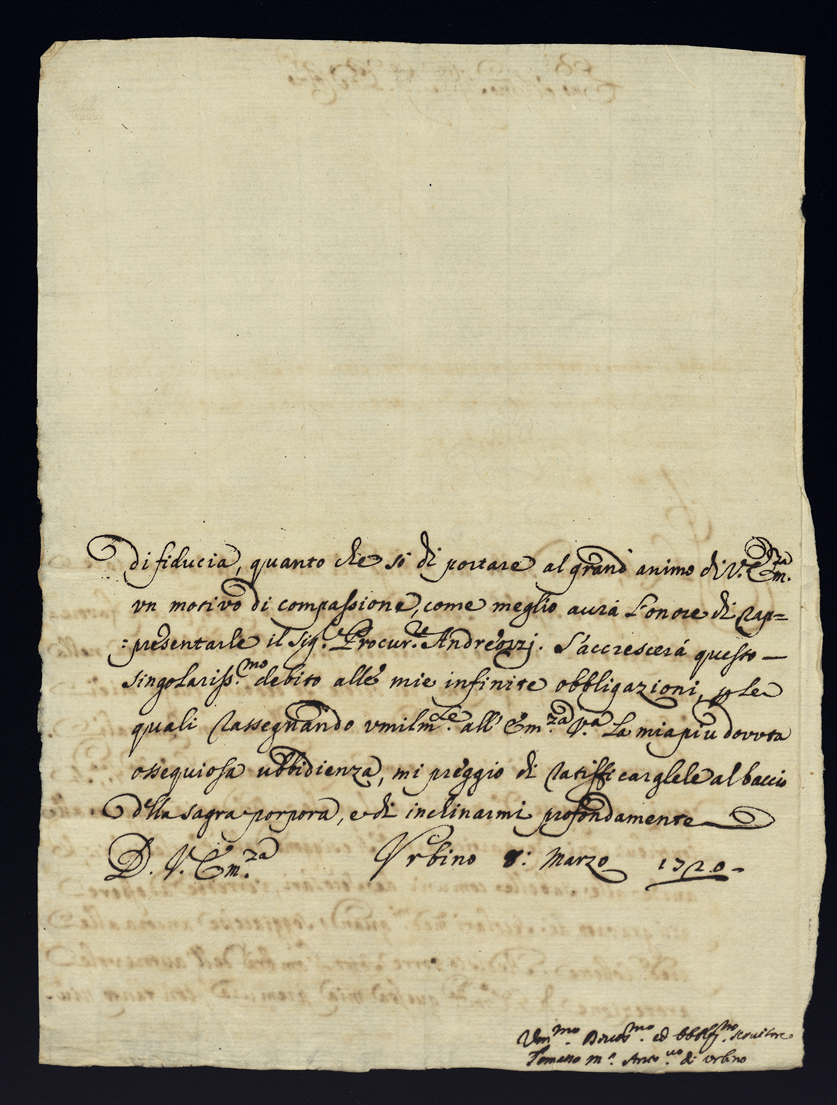 di fiducia, quanto che só di portare al grand' animo di V. Em.za
vn motivo di compassione, come meglio aurà l'onore di rap=
:presentarle il Sig.r Procur.le Andreozzi. S'accrescerá questo
singolariss.mo debito alle mie infinite obbligazioni, p le
quali rassegnando vmilm.te all' Em.za V.a la mia piu dovuta
ossequiosa ubbidienza, mi preggio di ratifficarglele al baccio
della sagra porpora, e di inclinarmi profondamente
D. V. Em.za Vrbino 8: Marzo 1720
Vm.mo Deuot.mo ed obblig.mo seruitore
Tomaso M.a Arciu.uo di Vrbino